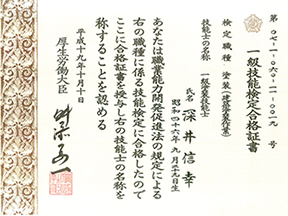 第07-1-06-11-0019号
一級技能検定合格証書
検定職種 塗装(建築塗装作業)
技能士の名称 一級塗装技能士
氏名 深井信幸
昭和四十六年九月二十九日生
あなたは職業能力開発促進法の規定による
右の職種に係る技能検定に合格したので
ここに合格証書を授与し右の技能士の名称を
称することを認める
平成十九年十月十日
厚生労働大臣